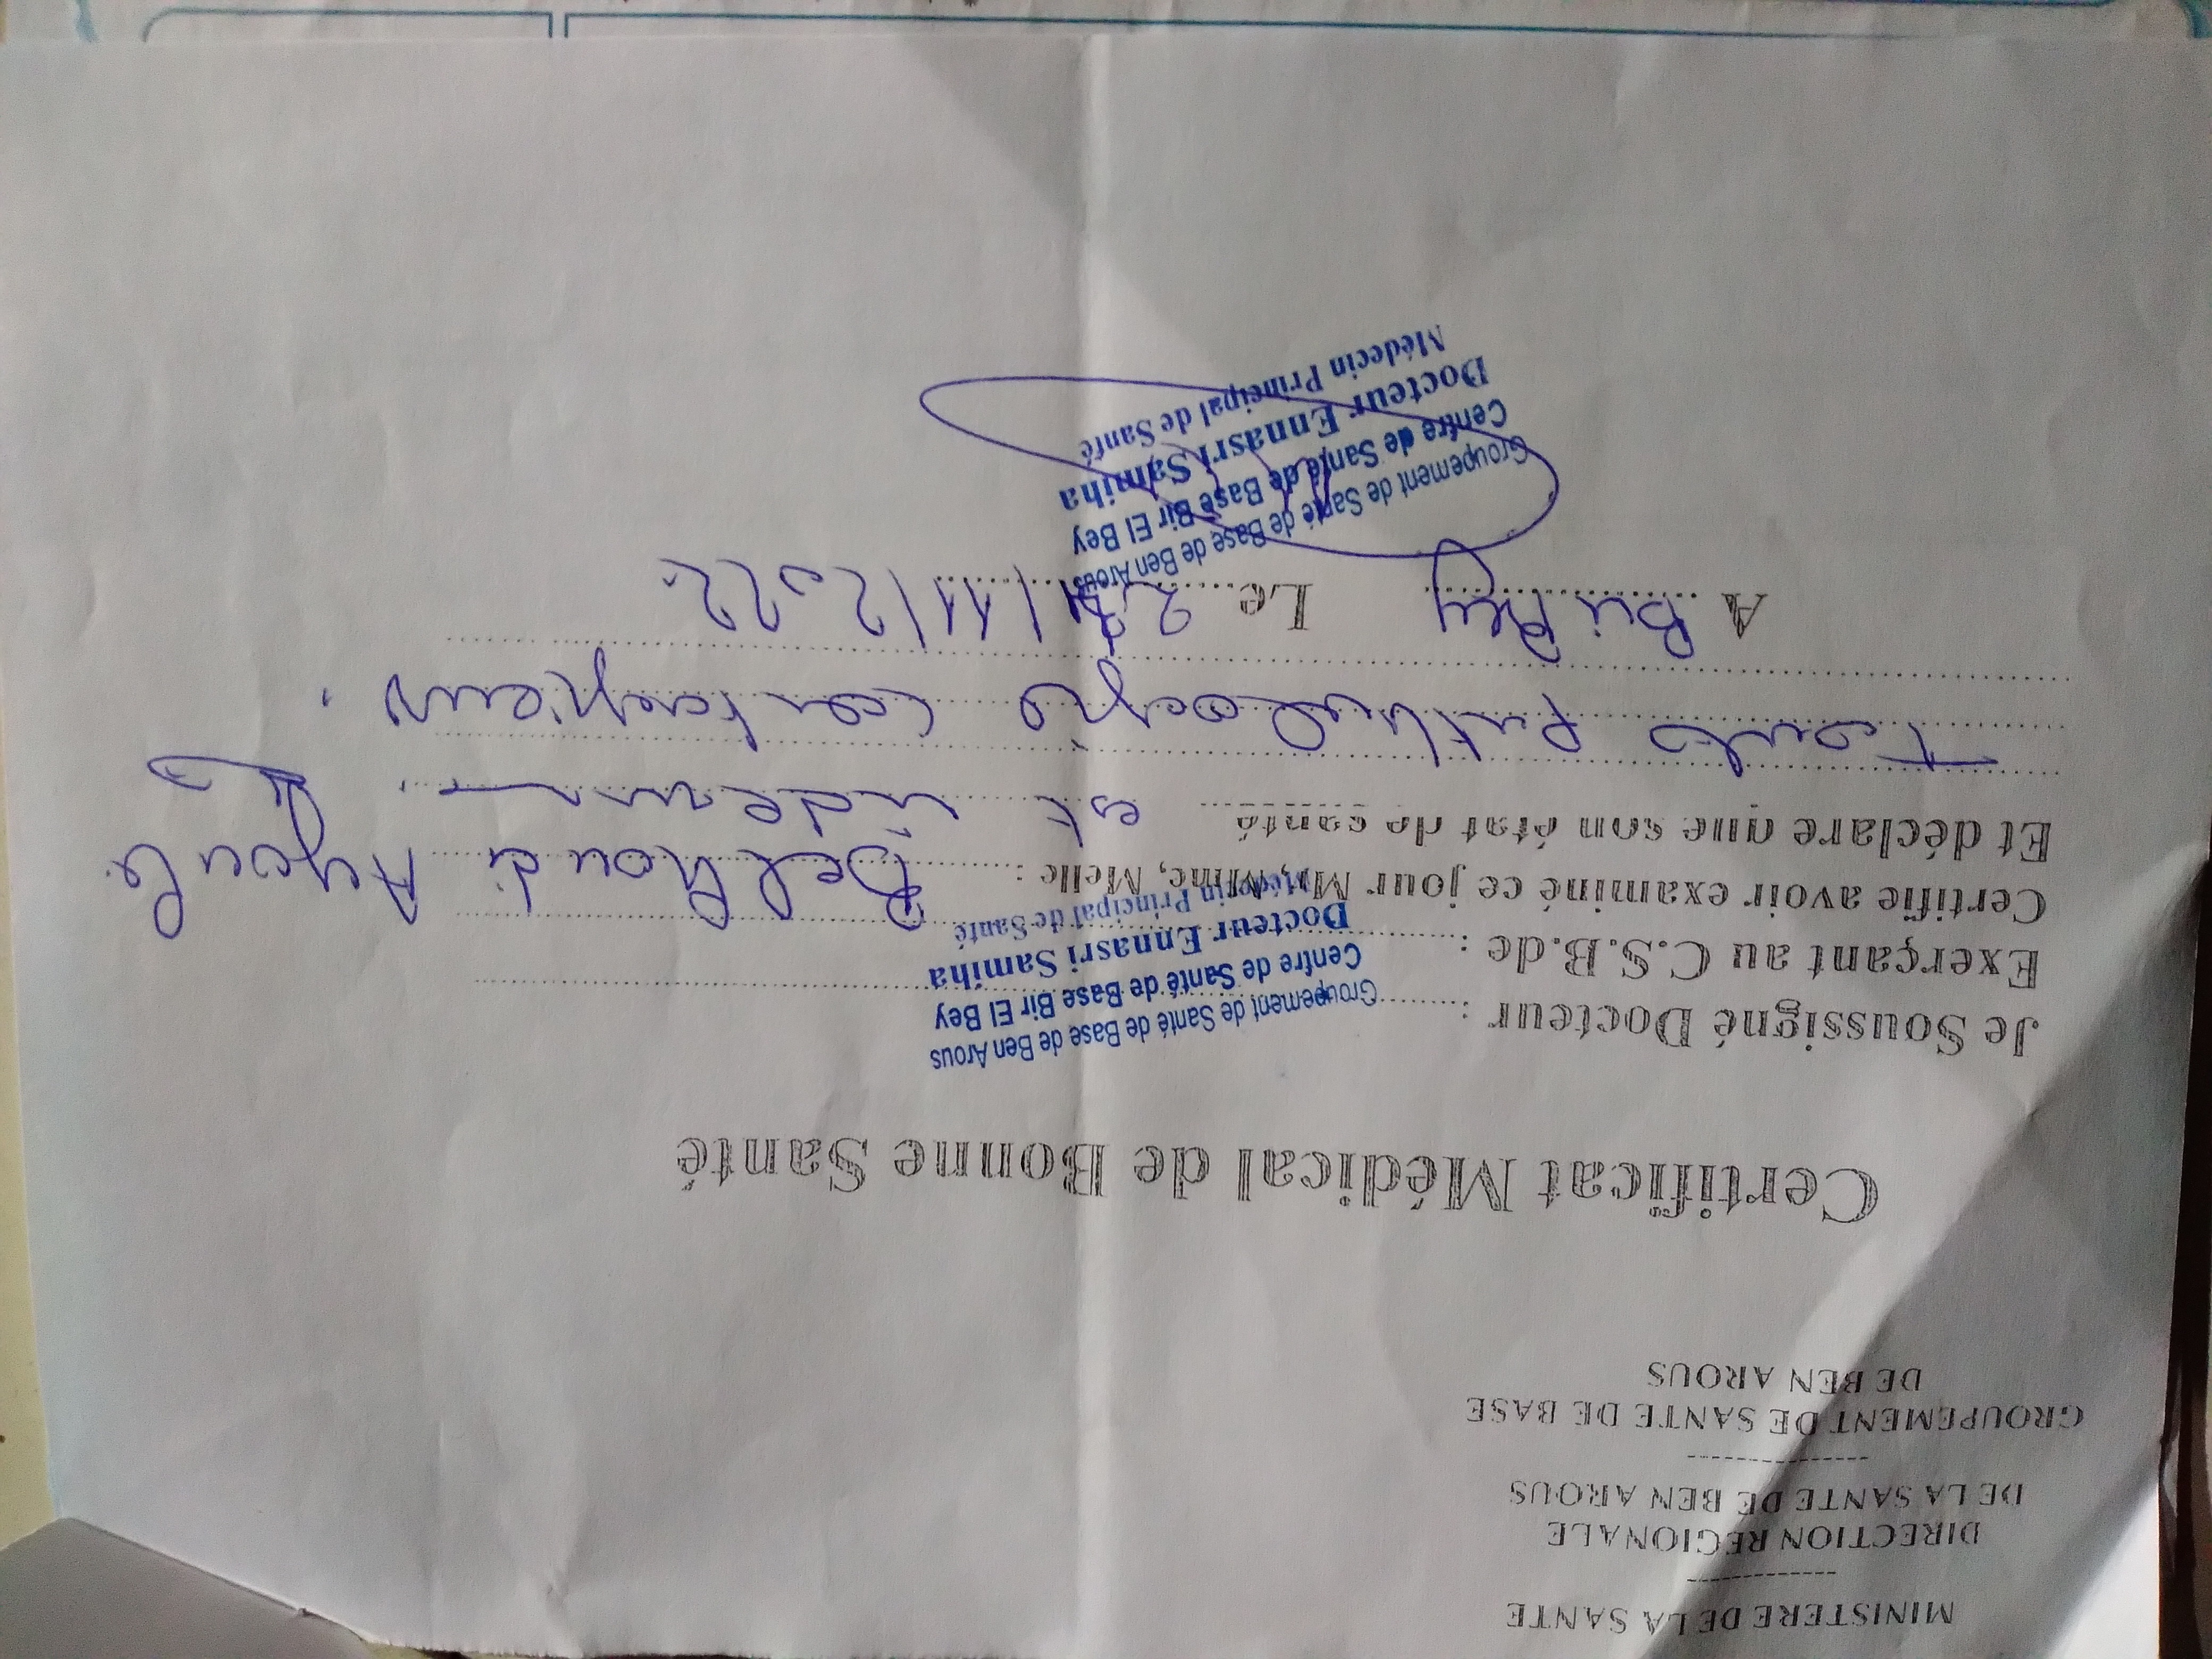 MINISTERE DE LA SANTE
------------
DIRECTION REGIONALE
DE LA SANTE DE BEN AROUS
--------------
GROUPEMENT DE SANTE DE BASE
DE BEN AROUS
Certificat Médical de Bonne Santé
Je Soussigné Docteur :
Groupement de Santé de Base de Ben Arous
Centre de Santé de Base Bir El Bey
Docteur Ennasri Samiha
Médecin Principal de Santé
Exerçant au C.S.B.de :
Certifie avoir examiné ce jour Mr, Mme, Melle :
Et déclare que son état de santé est indemne
toute pathologie contagieuse.
A Bir Bey Le 11/2022
Groupement de Santé de Base de Ben Arous
Centre de Santé de Base Bir El Bey
Docteur Ennasri Samiha
Médecin Principal de Santé